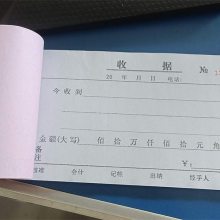 收 据 №
20 年 月 日 电话:
今收到
金额(大写) 佰 拾 万 仟 佰 拾 元 角
备注 ¥:
会计 记帐 出纳 经手人